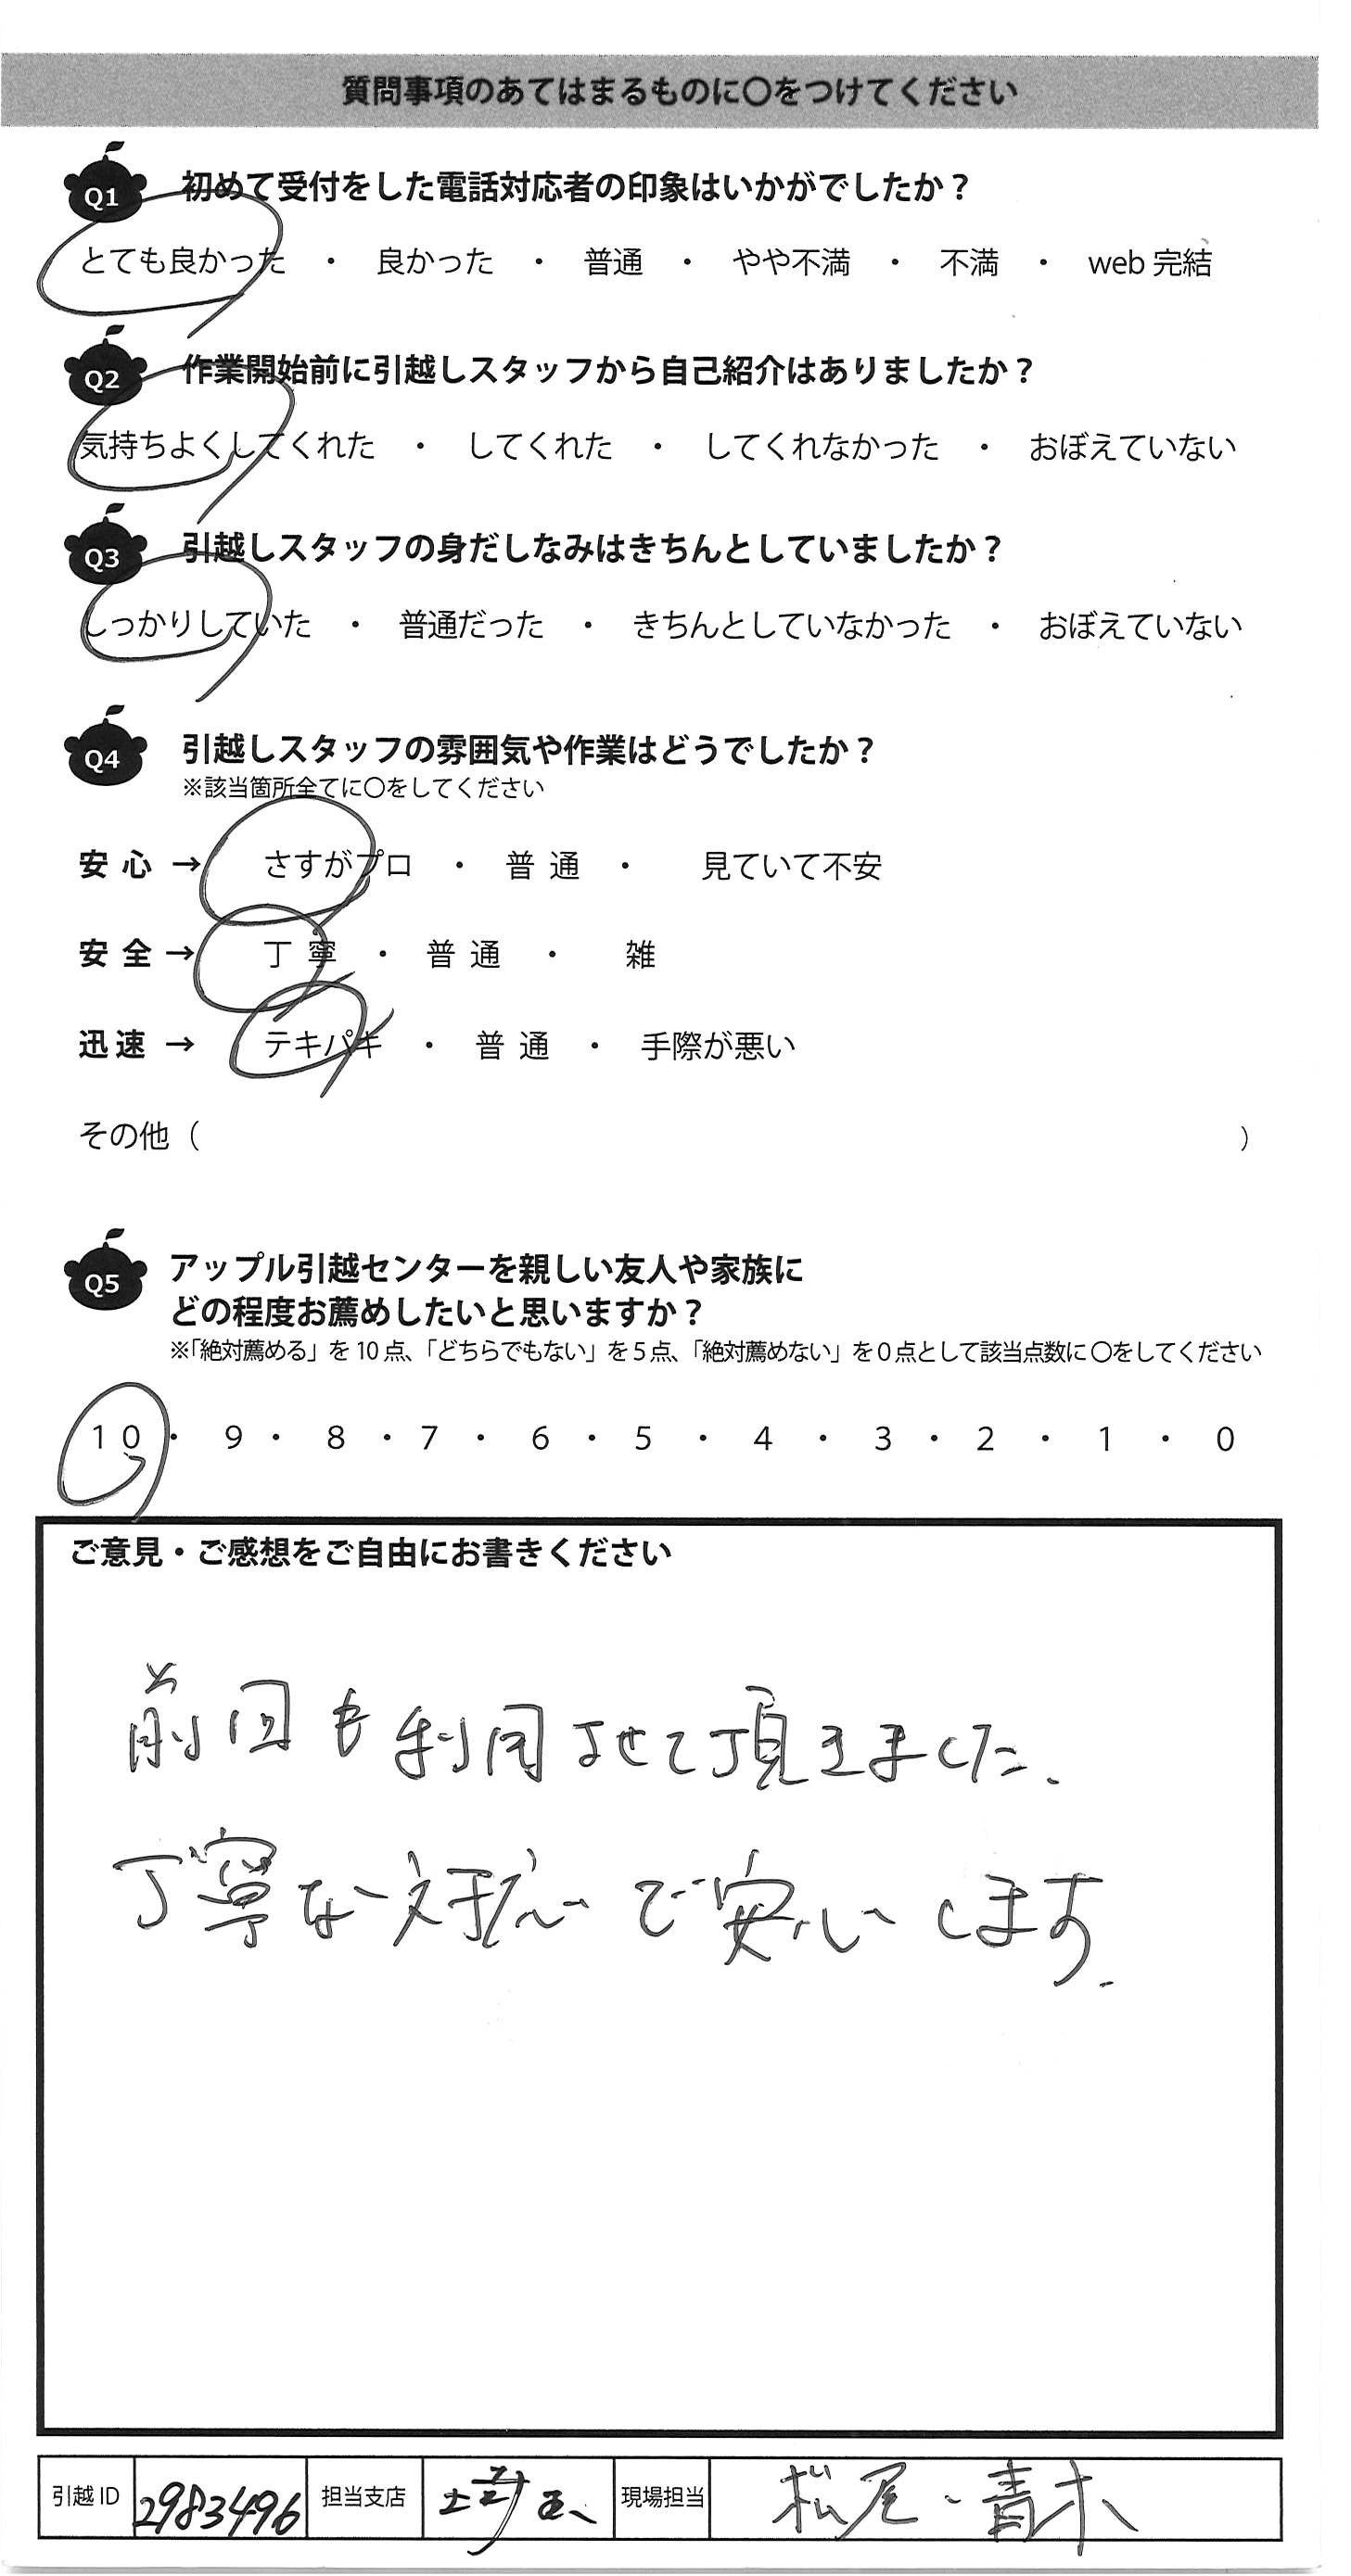 質問事項のあてはまるものに〇をつけてください
Q1 初めて受付をした電話対応者の印象はいかがでしたか？
とても良かった ・ 良かった ・ 普通 ・ やや不満 ・ 不満 ・ web 完結
Q2 作業開始前に引越しスタッフから自己紹介はありましたか？
気持ちよくしてくれた ・ してくれた ・ してくれなかった ・ おぼえていない
Q3 引越しスタッフの身だしなみはきちんとしていましたか？
しっかりしていた ・ 普通だった ・ きちんとしていなかった ・ おぼえていない
Q4 引越しスタッフの雰囲気や作業はどうでしたか？
※該当箇所全てに〇をしてください
安心 → さすがプロ ・ 普通 ・ 見ていて不安
安全 → 丁寧 ・ 普通 ・ 雑
迅速 → テキパキ ・ 普通 ・ 手際が悪い
その他（ ）
Q5 アップル引越センターを親しい友人や家族に
どの程度お薦めしたいと思いますか？
※「絶対薦める」を 10 点、「どちらでもない」を 5 点、「絶対薦めない」を 0 点として該当点数に〇をしてください
10 ・ 9 ・ 8 ・ 7 ・ 6 ・ 5 ・ 4 ・ 3 ・ 2 ・ 1 ・ 0
ご意見・ご感想をご自由にお書きください
前回も利用させて頂きました.
丁寧な対応で安心します.
引越 ID 2983496 担当支店 現場担当 松尾・青木